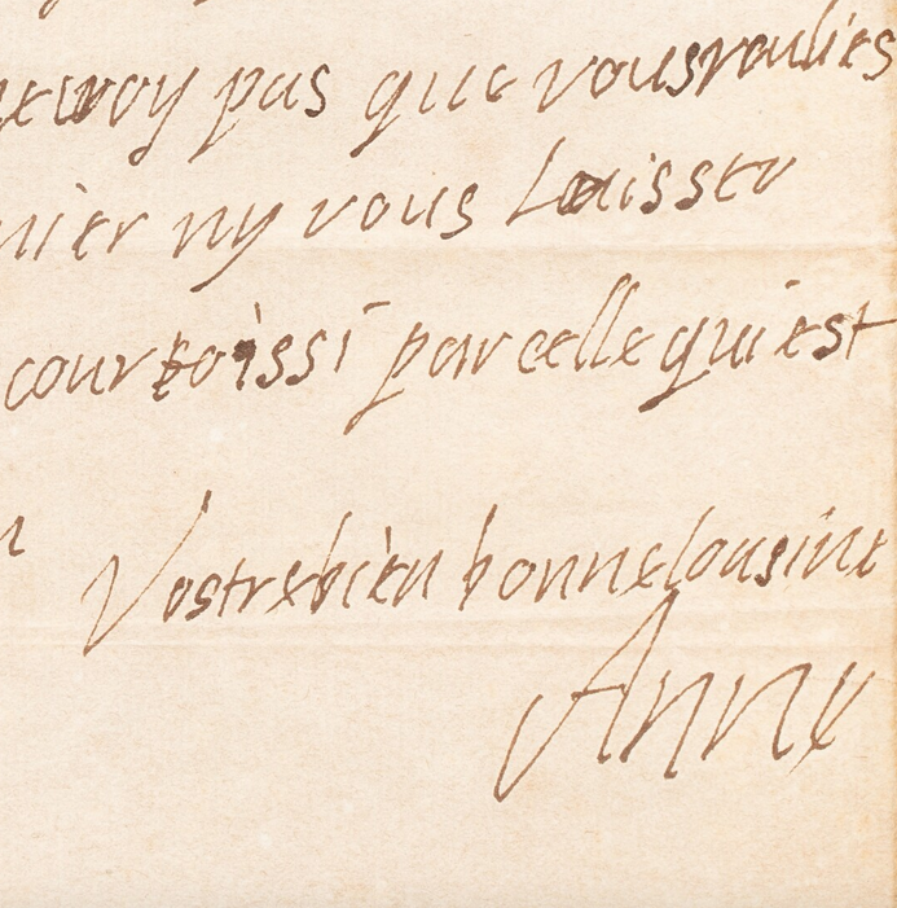 voy pas que vous voulies
nier ny vous Laisser
courtoissi par celle qui est
Vostre bien bonne Cousine
Anne